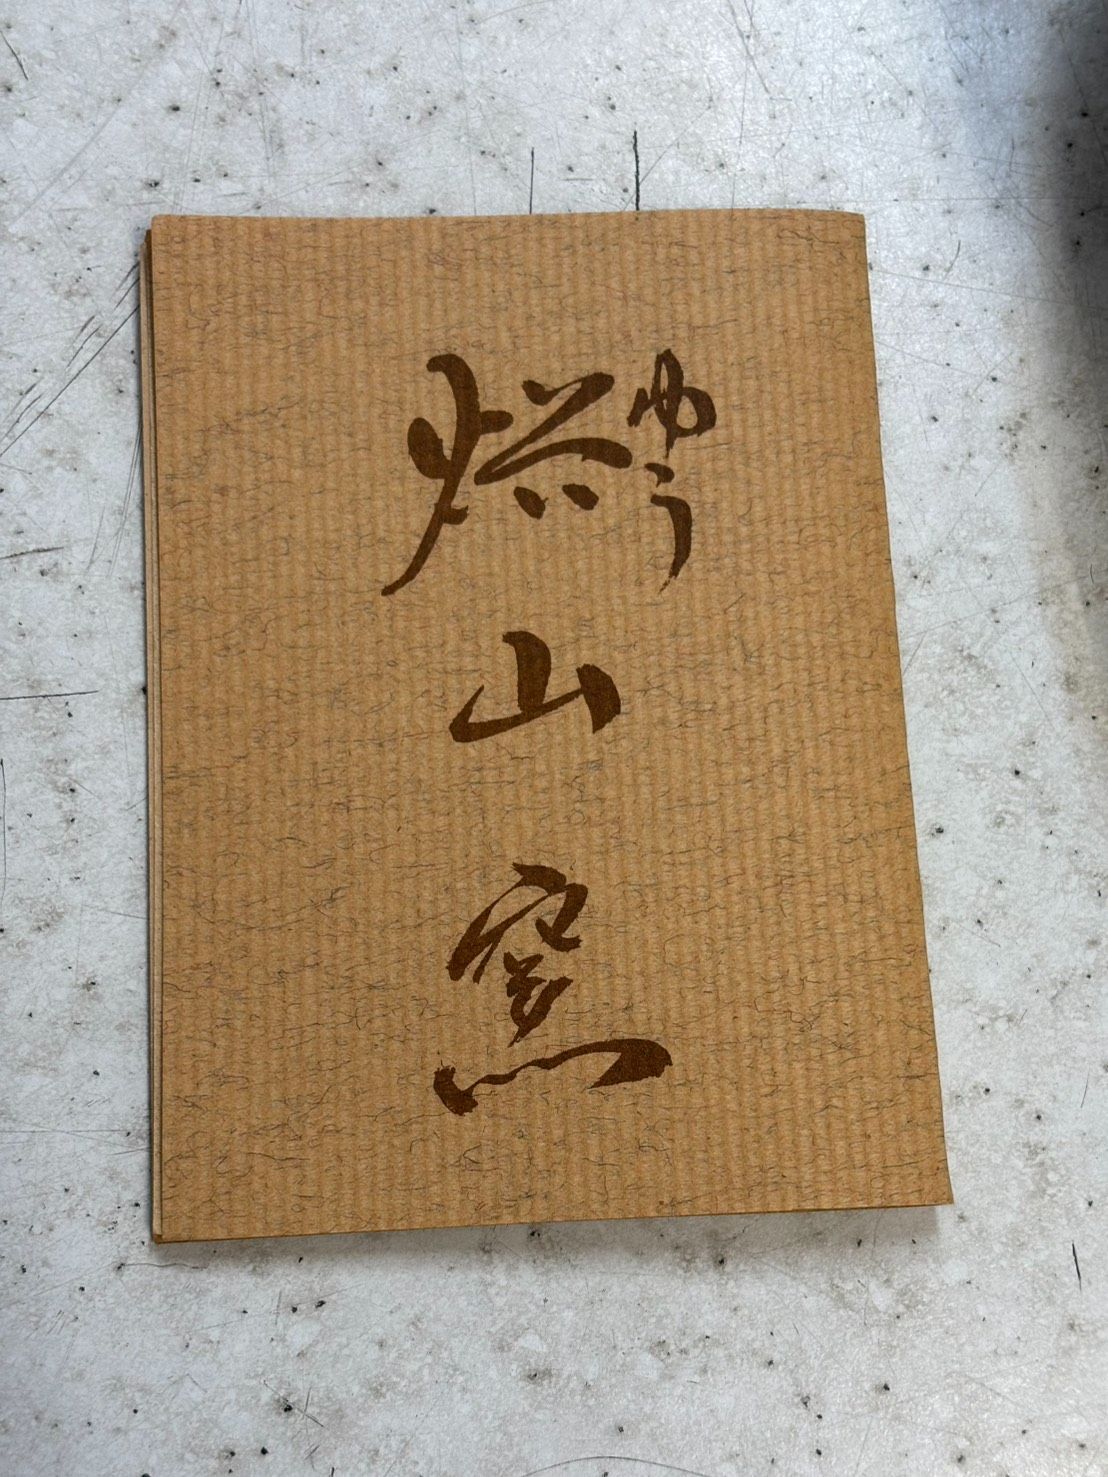 焀山窯
ゆう